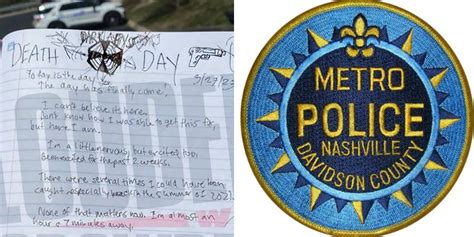 DEATH DAY
3/27/23
Today is the day
The day has finally come,
I can't believe its here.
Dont know how I was able to get this far,
but here I am.
I'm a little nervous, but excited too,
Been excited for the past 2 weeks.
There were several times I could have been
caught, especially back in the summer of 2021.
None of that matters now. I'm almost an
hour & 7 minutes away.
METRO
POLICE
NASHVILLE
DAVIDSON COUNTY